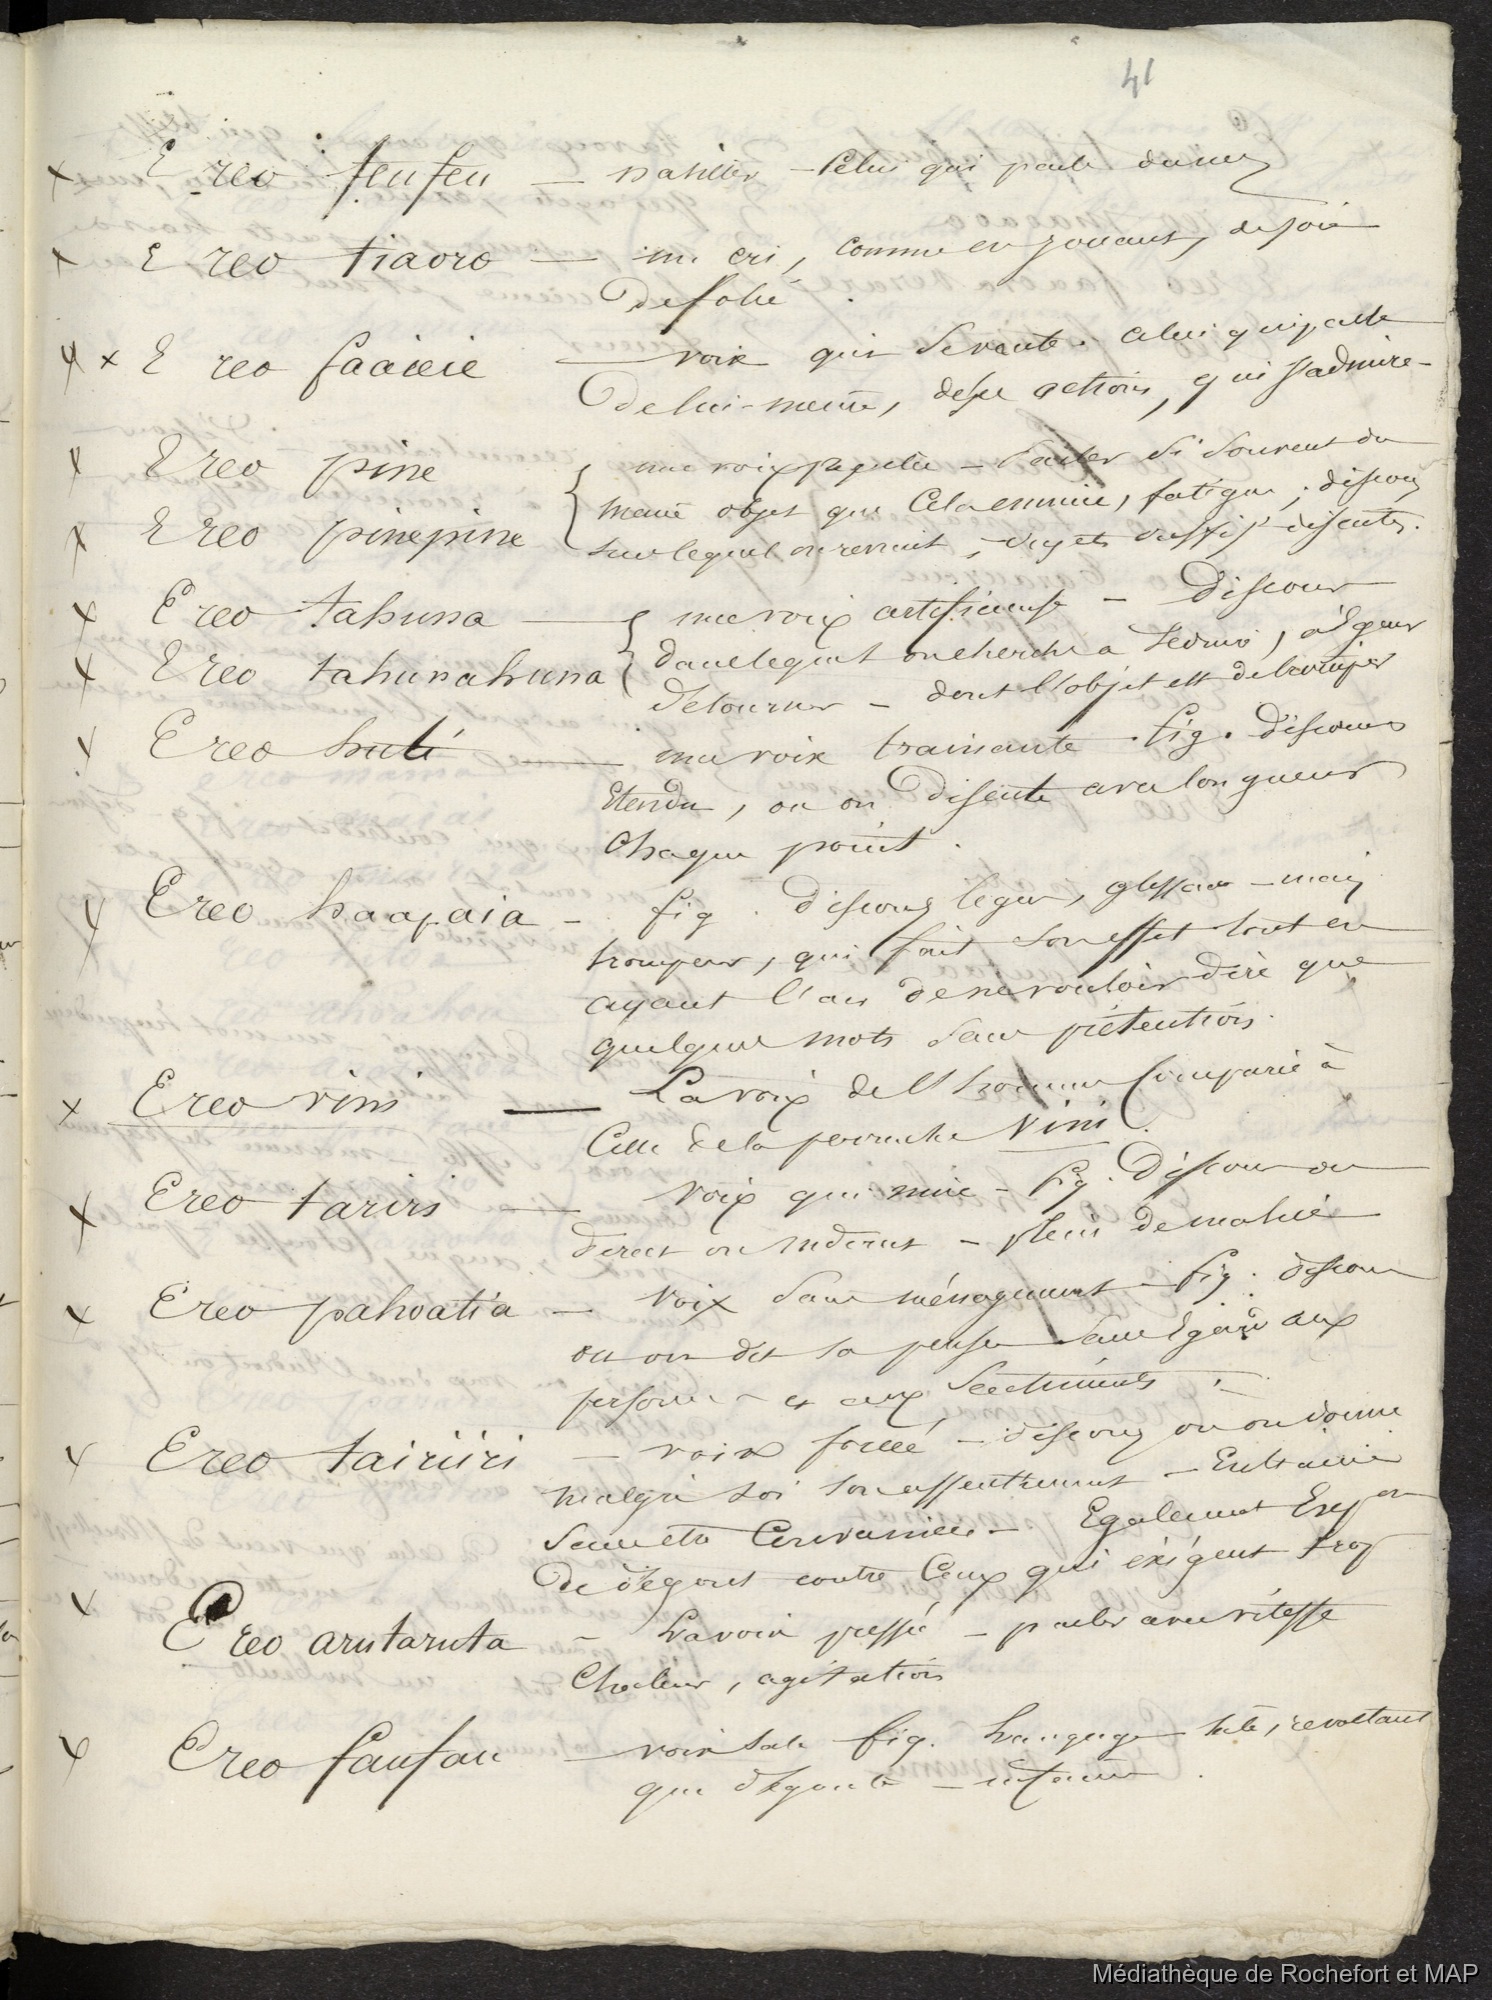 41
x E reo feufeu — nasiller – Celui qui parle du nez
x E reo tiaoro — un cri, comme en jouant, de joie
De folie .
x E reo faaieie — voix qui se vante . celui qui parle
De lui-même, de ses actions, qui s'admire –
x E reo pine { une voix repetée – Parler si souvent du
même objet que Cela ennuie, fatigue ; discours
x E reo pinepine
sur lequel on revient , sujets discutés .
x E reo tahuna — { une voix artificieuse – Discours
dans lequel on cherche a séduire , à
x E reo tahunahuna
Detourner – dont l'objet est de tromper
x E reo huti — une voix trainante . fig . Discours
Etendu , ou on Discute avec longueur
Chaque point .
x E reo haapaia – fig . Discours leger, glissant – mais
trompeur , qui fait son effet tout en
ayant l'air de ne vouloir dire que
quelques mots sans prétentions .
x E reo vini — La voix de l'homme Comparée à
Celle de la perruche Vini .
x E reo tariri — voix qui – fig . Discours ou
direct ou indirect – plein de malice
x E reo pahoatia — Voix sans ménagement – fig . discours
ou on dit sa pensée sans Egard aux
personnes et aux Sentiments .
x E reo tairiiri — voix forcée – discours ou on donne
malgré soi son assentiment – Entrainé
sans etre Convaincu – Egalement Expon
De dégout contre Ceux qui exigent trop
x E reo arutaruta – La voix pressée – parler avec vitesse
Chaleur , agitation
x E reo faufau — voix sale fig . Langage sale, revoltant
qui dégoute – infame .
Médiathèque de Rochefort et MAP